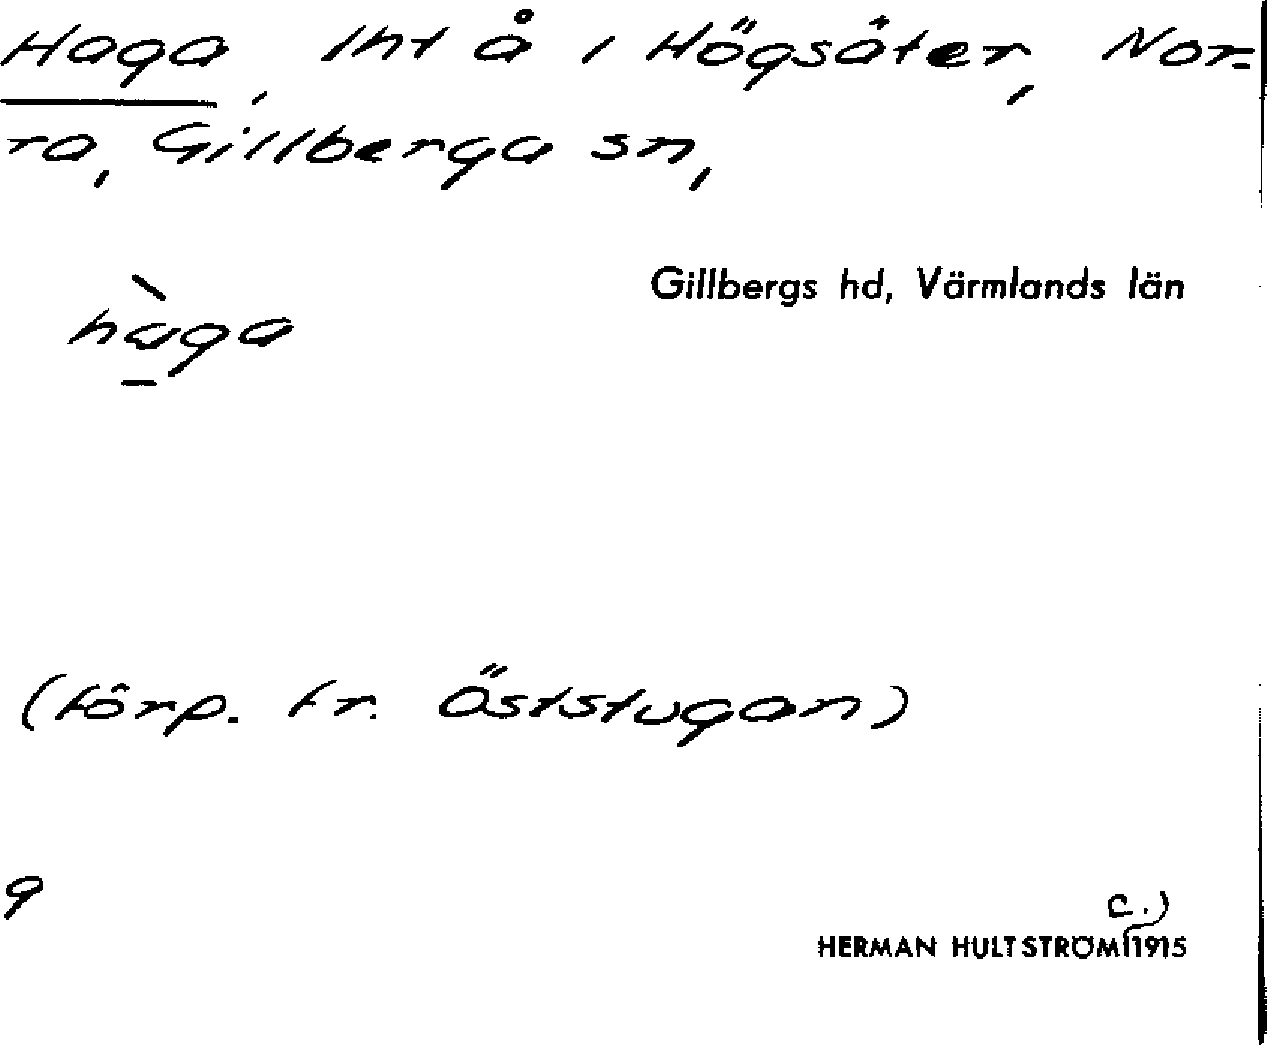 Haga, lht å i Högsäter, Nor-
ra, Gillberga sn,
Gillbergs hd, Värmlands län
hàga
(förp. fr. Öststugan)
9
c.)
HERMAN HULTSTRÖM 1915